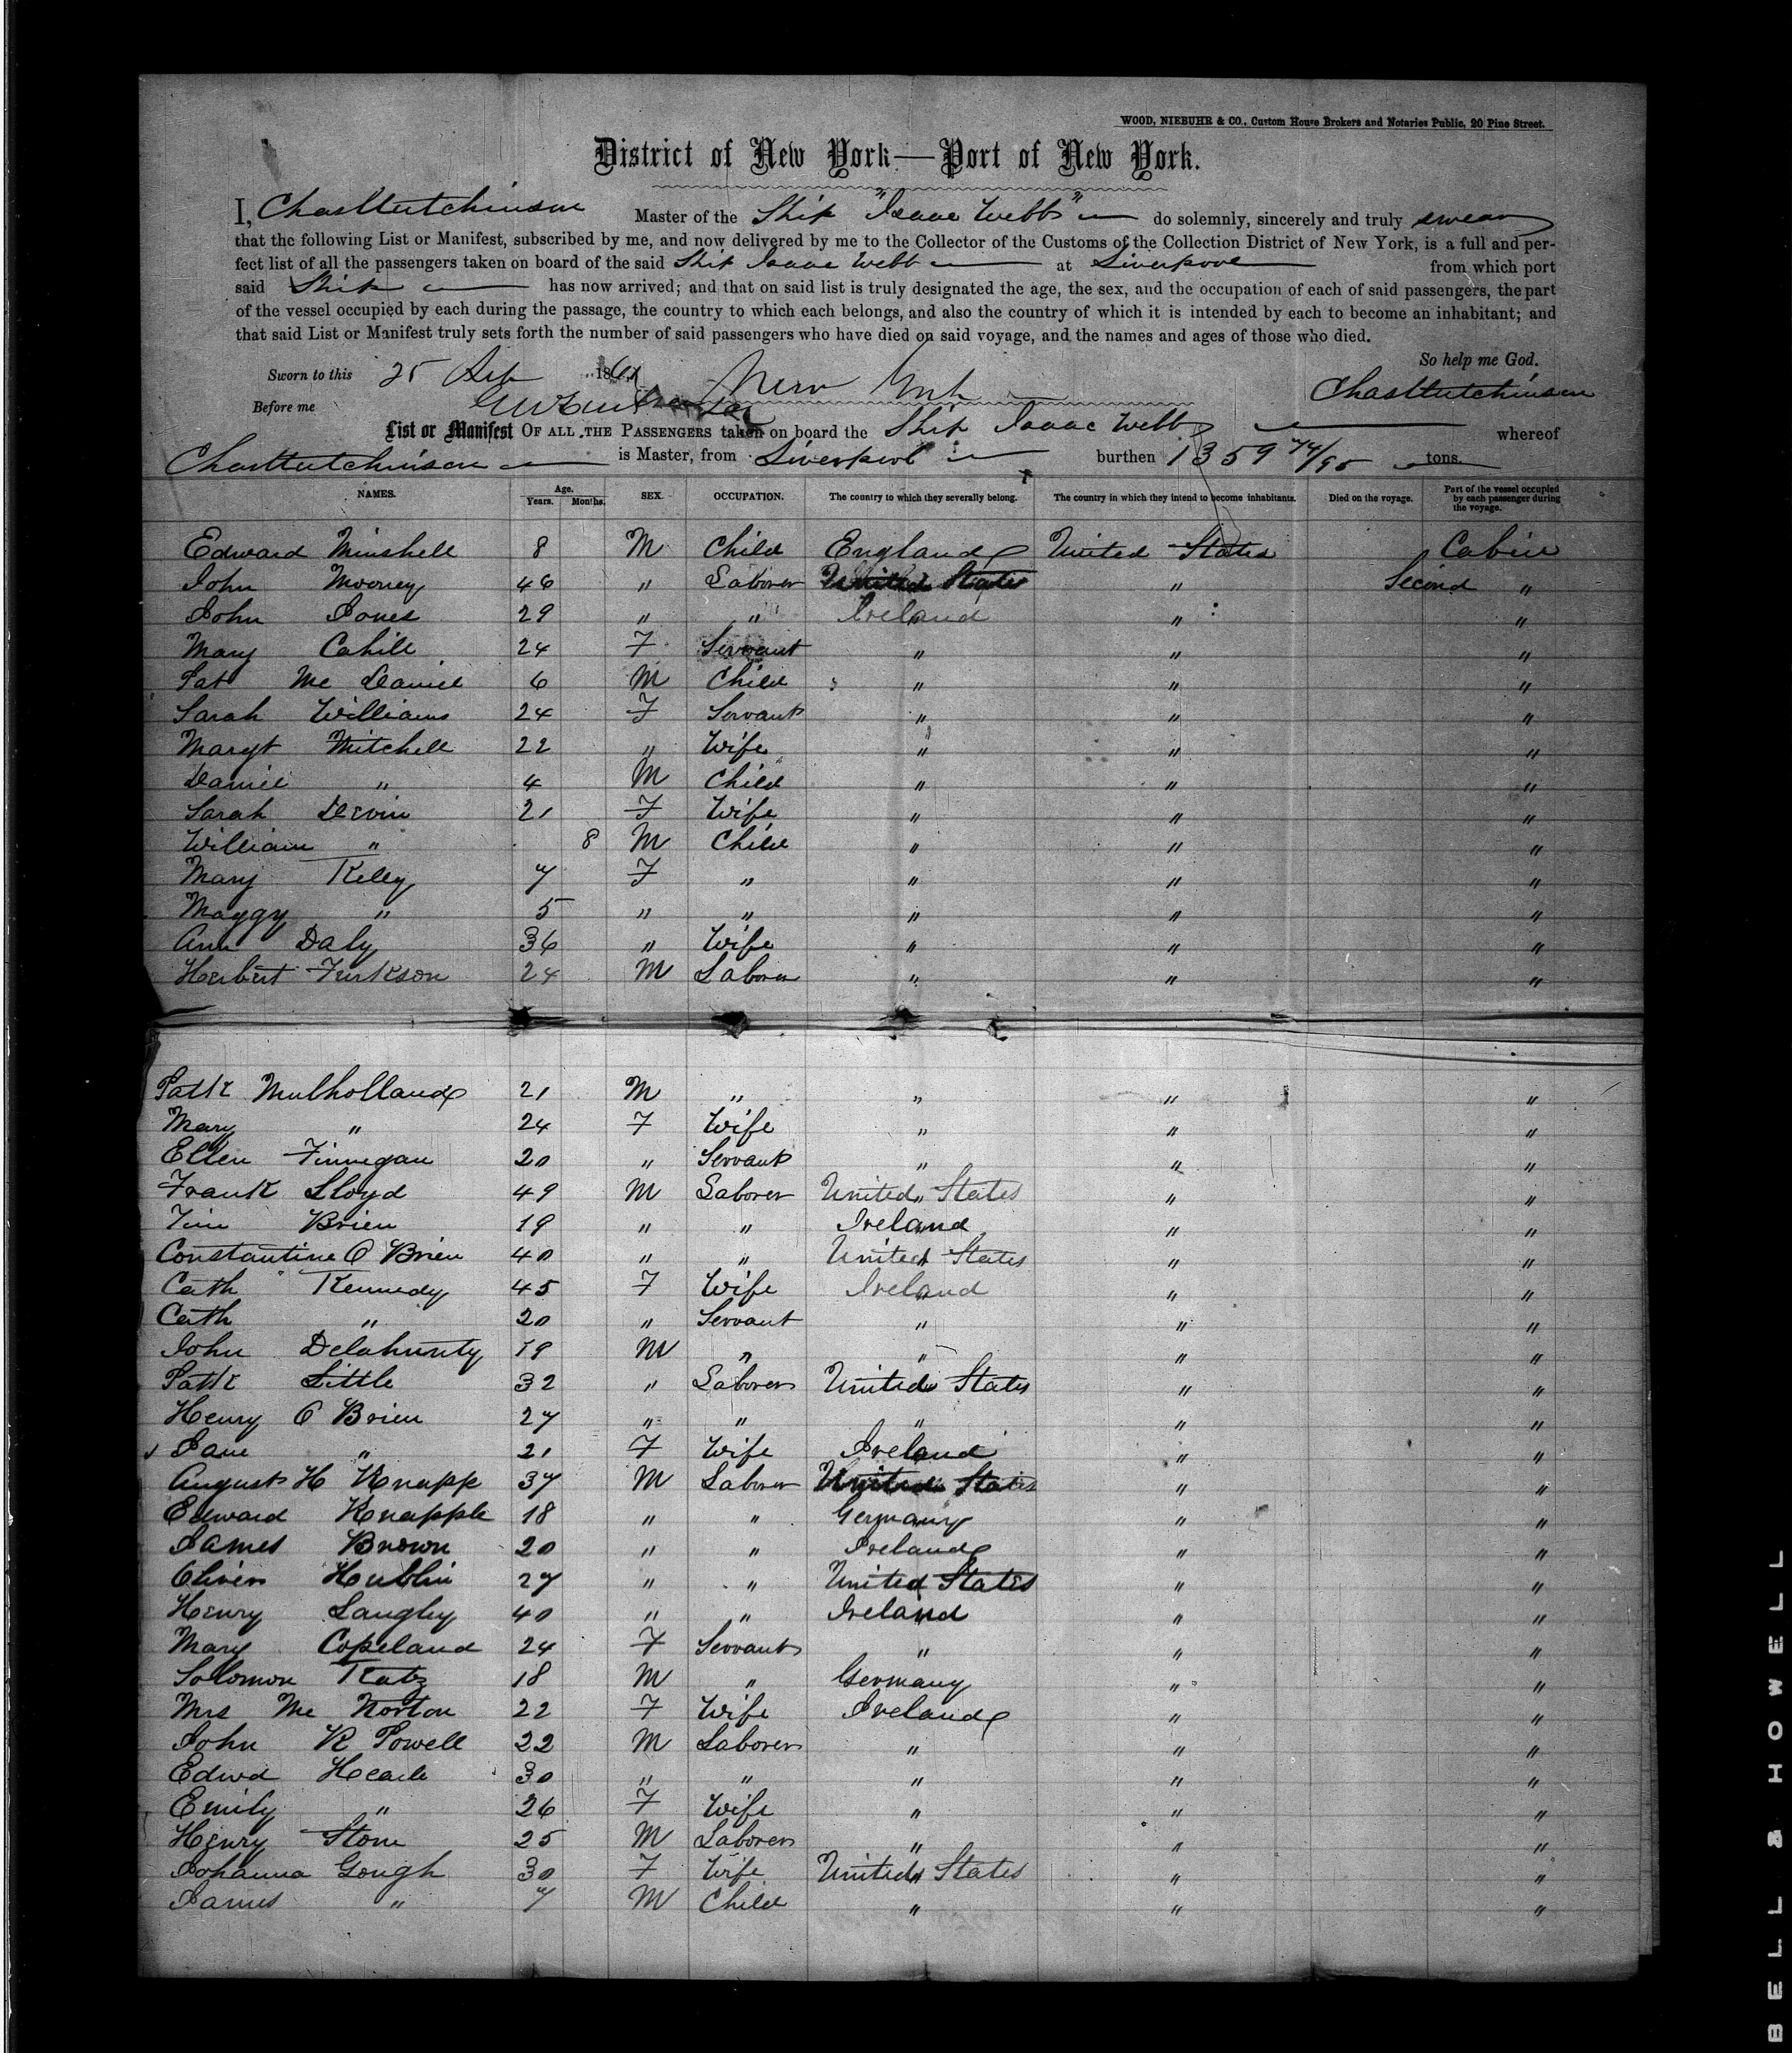 WOOD, NIEBUHR & CO., Custom House Brokers and Notaries Public, 20 Pine Street.
District of New York—Port of New York.
I, Chas Hutchinson Master of the Ship "Isaac Webb" do solemnly, sincerely and truly swear
that the following List or Manifest, subscribed by me, and now delivered by me to the Collector of the Customs of the Collection District of New York, is a full and per-
fect list of all the passengers taken on board of the said Ship Isaac Webb at Liverpool from which port
said Ship has now arrived; and that on said list is truly designated the age, the sex, and the occupation of each of said passengers, the part
of the vessel occupied by each during the passage, the country to which each belongs, and also the country of which it is intended by each to become an inhabitant; and
that said List or Manifest truly sets forth the number of said passengers who have died on said voyage, and the names and ages of those who died.
So help me God.
Sworn to this 25 186 New York Chas Hutchinson
Before me
List or Manifest OF ALL THE PASSENGERS taken on board the Ship Isaac Webb whereof
Chas Hutchinson is Master, from Liverpool burthen 1359 74/95 tons.
NAMES. Age. Years. Months. SEX. OCCUPATION. The country to which they severally belong. The country in which they intend to become inhabitants. Died on the voyage. Part of the vessel occupied by each passenger during the voyage.
Edward Minshell 8 M Child England United States Cabin
John Mooney 46 " Laborer United States " Second "
John Jones 29 " " Ireland " "
Mary Cahill 24 F Servant " " "
Pat Mc Daniel 6 M Child " " "
Sarah Williams 24 F Servant " " "
Margt Mitchell 22 " Wife " " "
Daniel " 4 M Child " " "
Sarah Devin 21 F Wife " " "
William " 8 M Child " " "
Mary Kelly 7 F " " " "
Maggy " 5 " " " " "
Ann Daly 36 " Wife " " "
Herbert Furkson 24 M Laborer " " "
Patk Mulholland 21 M " " " "
Mary " 24 F Wife " " "
Ellen Finnegan 20 " Servant " " "
Frank Lloyd 49 M Laborer United States " "
Tim Brien 19 " " Ireland " "
Constantine O Brien 40 " " United States " "
Cath Kennedy 45 F Wife Ireland " "
Cath " 20 " Servant " " "
John Delahunty 19 M " " " "
Patk Little 32 " Laborer United States " "
Henry O Brien 27 " " " " "
Jane " 21 F Wife Ireland " "
August H Knapp 37 M Laborer United States " "
Edward Knapple 18 " " Germany " "
James Brown 20 " " Ireland " "
Oliver Hublin 27 " " United States " "
Henry Langley 40 " " Ireland " "
Mary Copeland 24 F Servant " " "
Solomon Katz 18 M " Germany " "
Mrs Mc Norton 22 F Wife Ireland " "
John R Powell 22 M Laborer " " "
Edwd Heale 30 " " " " "
Emily " 26 F Wife " " "
Henry Stone 25 M Laborer " " "
Johanna Gough 30 F Wife United States " "
James " 7 M Child " " "
BELL & HOWELL